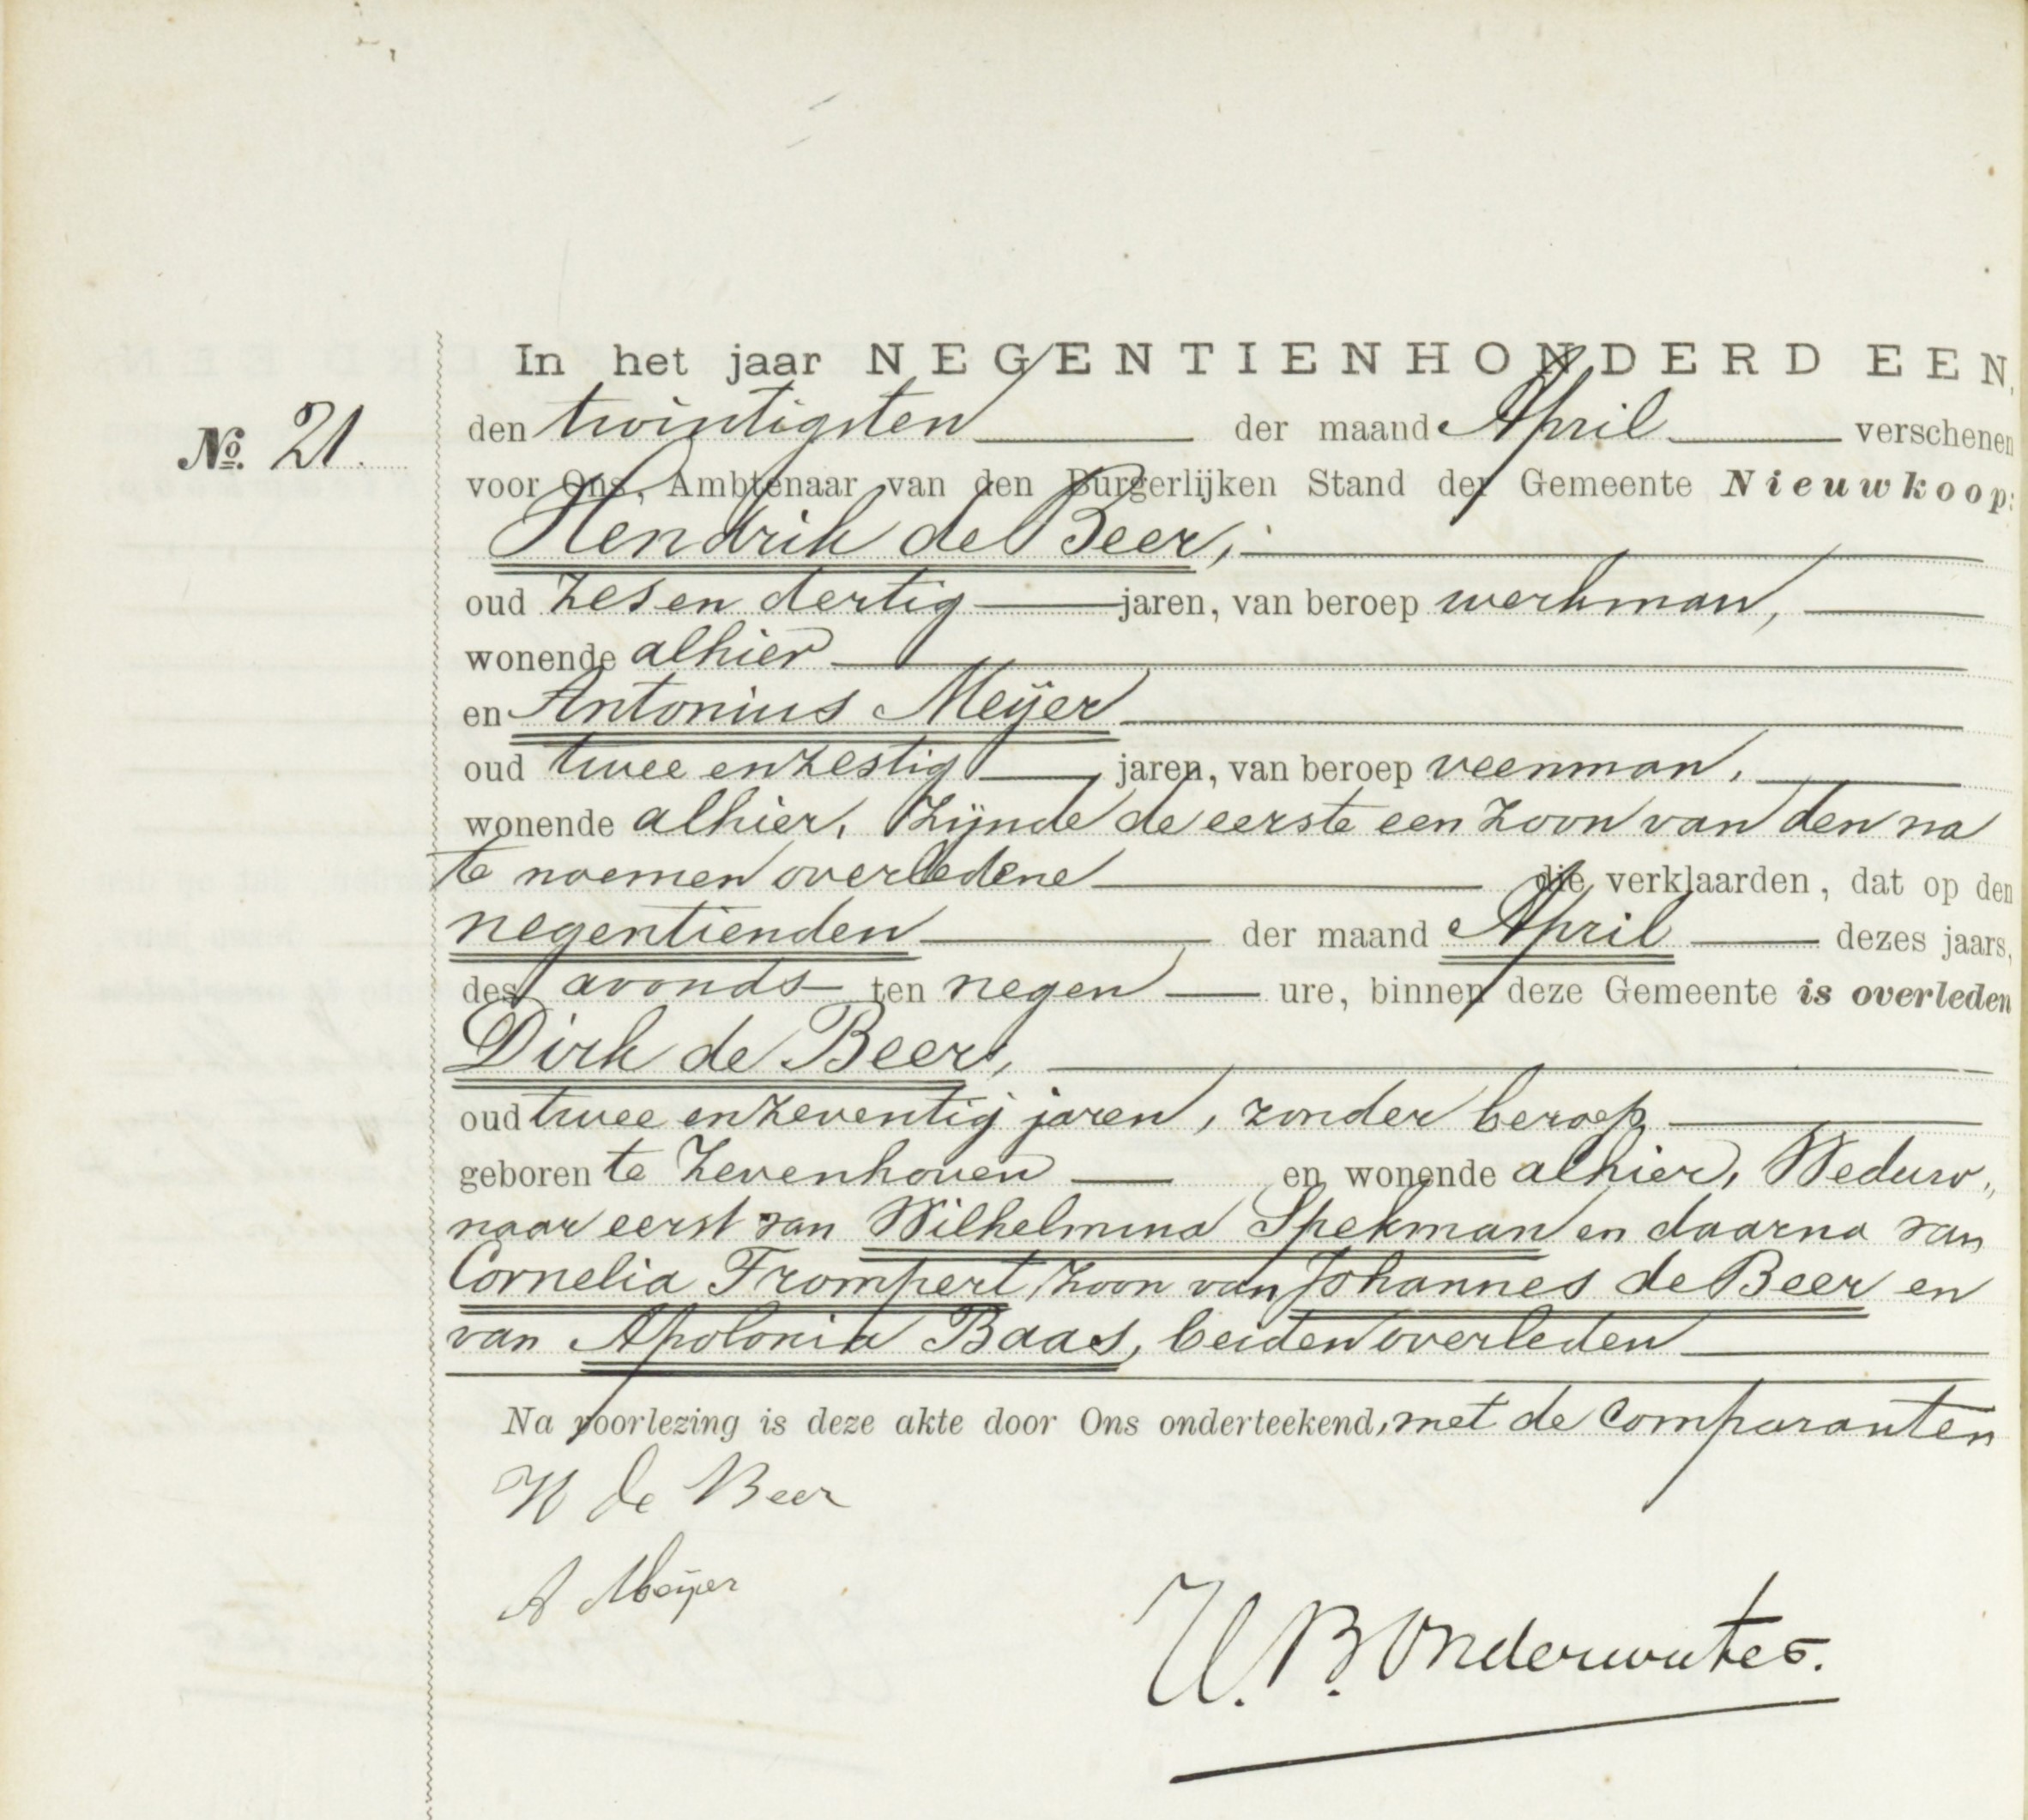 In het jaar NEGENTIENHONDERD EEN,
No. 21. den twintigsten der maand April verschenen
voor Ons, Ambtenaar van den Burgerlijken Stand der Gemeente Nieuwkoop:
Hendrik de Beer,
oud zes en dertig jaren, van beroep werkman,
wonende alhier
en Antonius Meijer
oud twee en zestig jaren, van beroep veenman,
wonende alhier, zijnde de eerste een zoon van den na
te noemen overledene die verklaarden, dat op den
negentienden der maand April dezes jaars,
des avonds ten negen ure, binnen deze Gemeente is overleden
Dirk de Beer,
oud twee en zeventig jaren, zonder beroep
geboren te Zevenhoven en wonende alhier, Weduw„
naar eerst van Wilhelmina Spekman en daarna van
Cornelia Frompert, zoon van Johannes de Beer en
van Apolonia Baas, beiden overleden
Na voorlezing is deze akte door Ons onderteekend, met de comparanten
H de Beer
A Meijer
W. B. Onderwater.